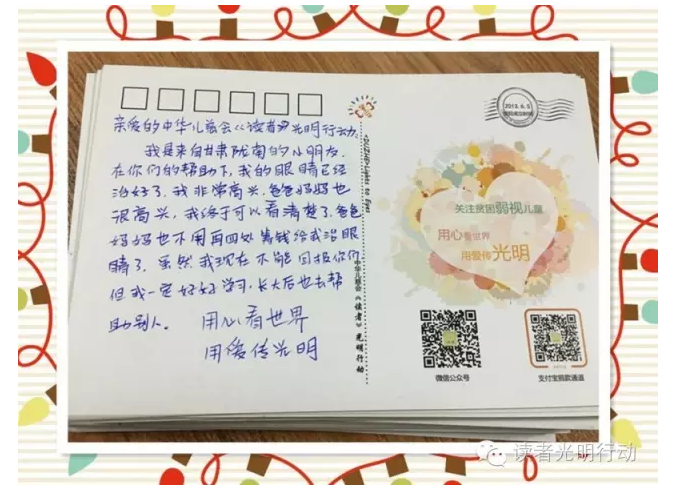 亲爱的中华儿慈会《读者》光明行动
我是来自甘肃陇南的小朋友.
在你们的帮助下,我的眼睛已经
治好了,我非常高兴,爸爸妈妈也
很高兴,我终于可以看清楚了.爸爸
妈妈也不用再四处筹钱给我治眼
睛了.虽然我现在不能回报你们
但我一定好好学习.长大后也去帮
助别人.
用心看世界
用爱传光明
中华儿慈会《读者》光明行动
2013.6.5
关注贫困弱视儿童
用心看世界
用爱传光明
微信公众号
支付宝捐款通道
读者光明行动